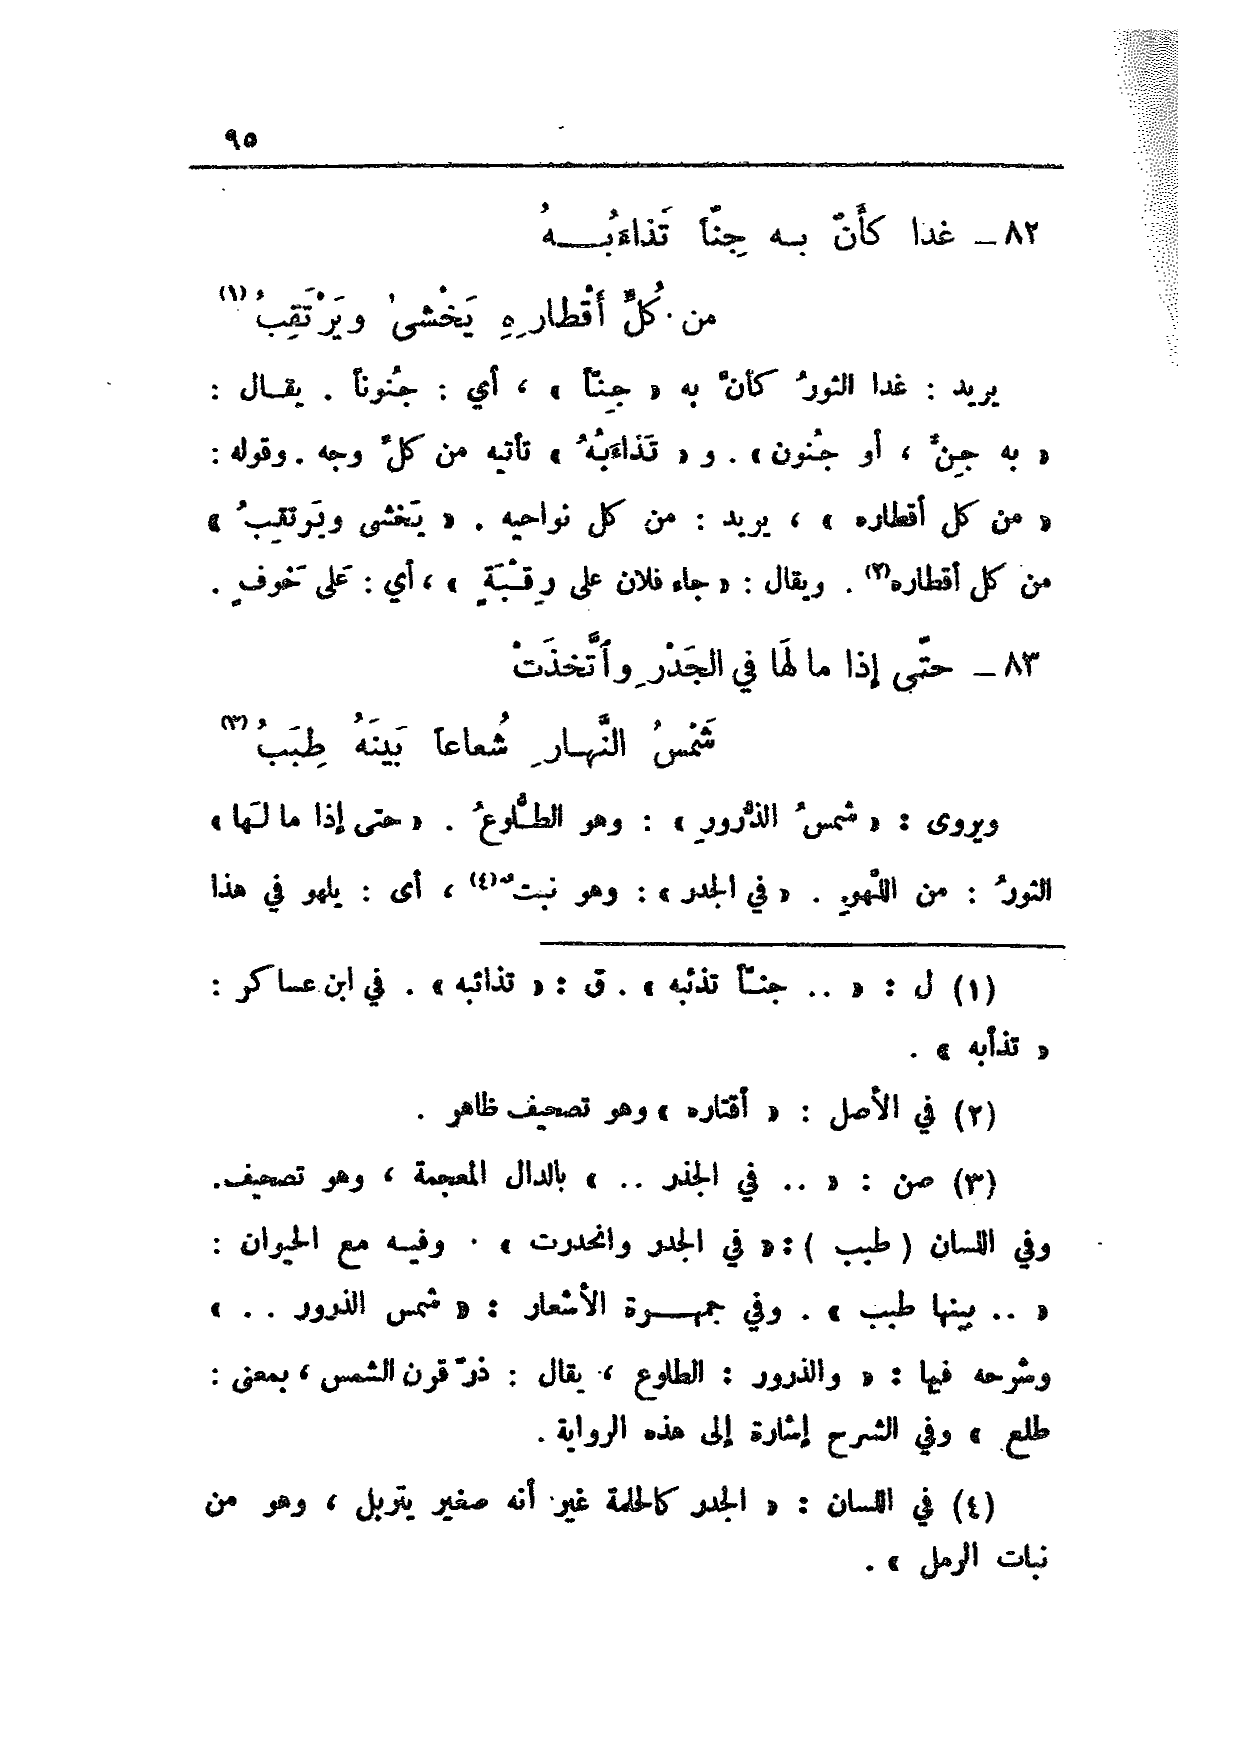 ٩٥
٨٢ ــ غدا كَأَنَّ بـه جِنّاً تَذاءَبُـــهُ
من كُلِّ أَقْطارِهِ يَخْشىٰ ويَرْتَقِبُ (١)
يريد : غدا الثورُ كأنّ به « جِنّاً » ، أي : جُنوناً . يقـال :
« به جِنٌّ ، أو جُنون » . و « تَذاءَبُهُ » تأتيه من كلّ وجه . وقوله :
« من كل أقطاره » ، يريد : من كل نواحيه . « يَخشى ويَرتقِبُ »
من كل أقطاره(٢) . ويقال : « جاء فلان على رِقْبَةٍ » ، أي : عَلى خَوفٍ .
٨٣ ــ حتّى إذا ما لَهَا في الجَدْرِ وٱتَّخذَتْ
شَمْسُ النَّهـارِ شُعاعاً بَينَهُ طِبَبُ (٣)
ويروى : « شمسُ الذُّرورِ » : وهو الطُّلوعُ . « حتى إذا ما لَـها »
الثورُ : من اللَّهوِ . « في الجدر » : وهو نبتٌ(٤) ، أى : يلهو في هذا
(١) ل : « .. جنـّاً تذئبه » . ق : « تذائبه » . في ابن عساكر :
« تذأبه » .
(٢) في الأصل : « أقتاره » وهو تصحيف ظاهر .
(٣) صن : « .. في الجذر .. » بالدال المعجمة ، وهو تصحيف.
وفي اللسان ( طبب ) : « في الجدر وانحدرت » . وفيـه مع الحيوان :
« .. بينها طبب » . وفي جمهـــرة الأشعار : « شمس الذرور .. »
وشرحه فيها : « والذرور : الطلوع ، يقال : ذرّ قرن الشمس ، بمعنى :
طلع » وفي الشرح إشارة إلى هذه الرواية .
(٤) في اللسان : « الجدر كالحلمة غير أنه صغير يتربل ، وهو من
نبات الرمل » .